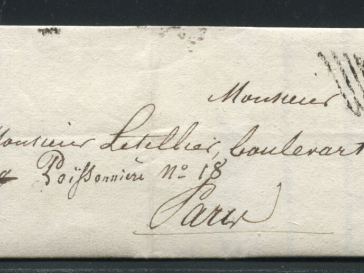 Monsieur
Monsieur Letellier, boulevart
Poissonnière N° 18
Paris